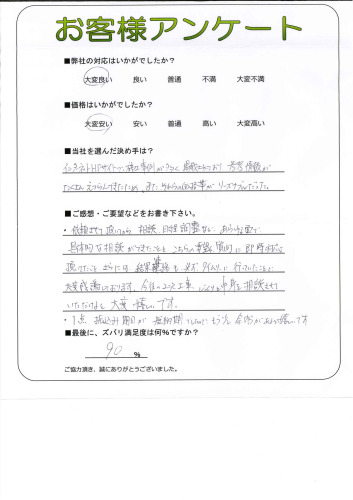 お客様アンケート
■弊社の対応はいかがでしたか？
大変良い 良い 普通 不満 大変不満
■価格はいかがでしたか？
大変安い 安い 普通 高い 大変高い
■当社を選んだ決め手は？
インターネットHPサイトで、施工事例が多く掲載されており 参考情報が
たくさん えられてきたため、また それらの価格が リーズナブルだった。
■ご感想・ご要望などをお書き下さい。
・依頼させて頂いてから 相談、日程調整など、
具体的な相談ができたこと こちらの 質問に 即時対応
頂けたこと さらに 結果連絡も タイムリーに 行っていたことに
大変感謝しております。今後の工事、 相談させて
いただけると 大変 嬉しいです。
・1点 振込み期日が 短納期 もう少し 余裕があると嬉しいです
■最後に、ズバリ満足度は何%ですか？
90 %
ご協力頂き、誠にありがとうございました。